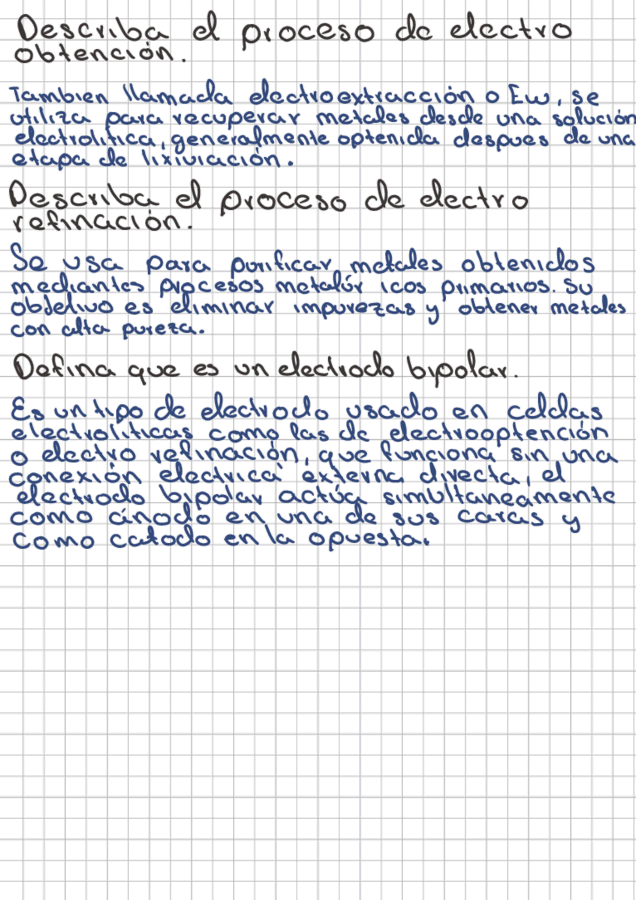 Describa el proceso de electro
obtención.
Tambien llamada electroextracción o Ew, se
utiliza para recuperar metales desde una solución
electrolitica, generalmente optenida despues de una
etapa de lixiviación.
Describa el proceso de electro
refinación.
Se usa para purificar metales obtenidos
mediantes procesos metalúr icos primarios. Su
objetivo es eliminar impurezas y obtener metales
con alta pureza.
Defina que es un electrodo bipolar.
Es un tipo de electrodo usado en celdas
electrolíticas como las de electrooptención
o electro refinación, que funciona sin una
conexión electrica externa directa, el
electrodo bipolar actúa simultaneamente
como ánodo en una de sus caras y
como catodo en la opuesta.